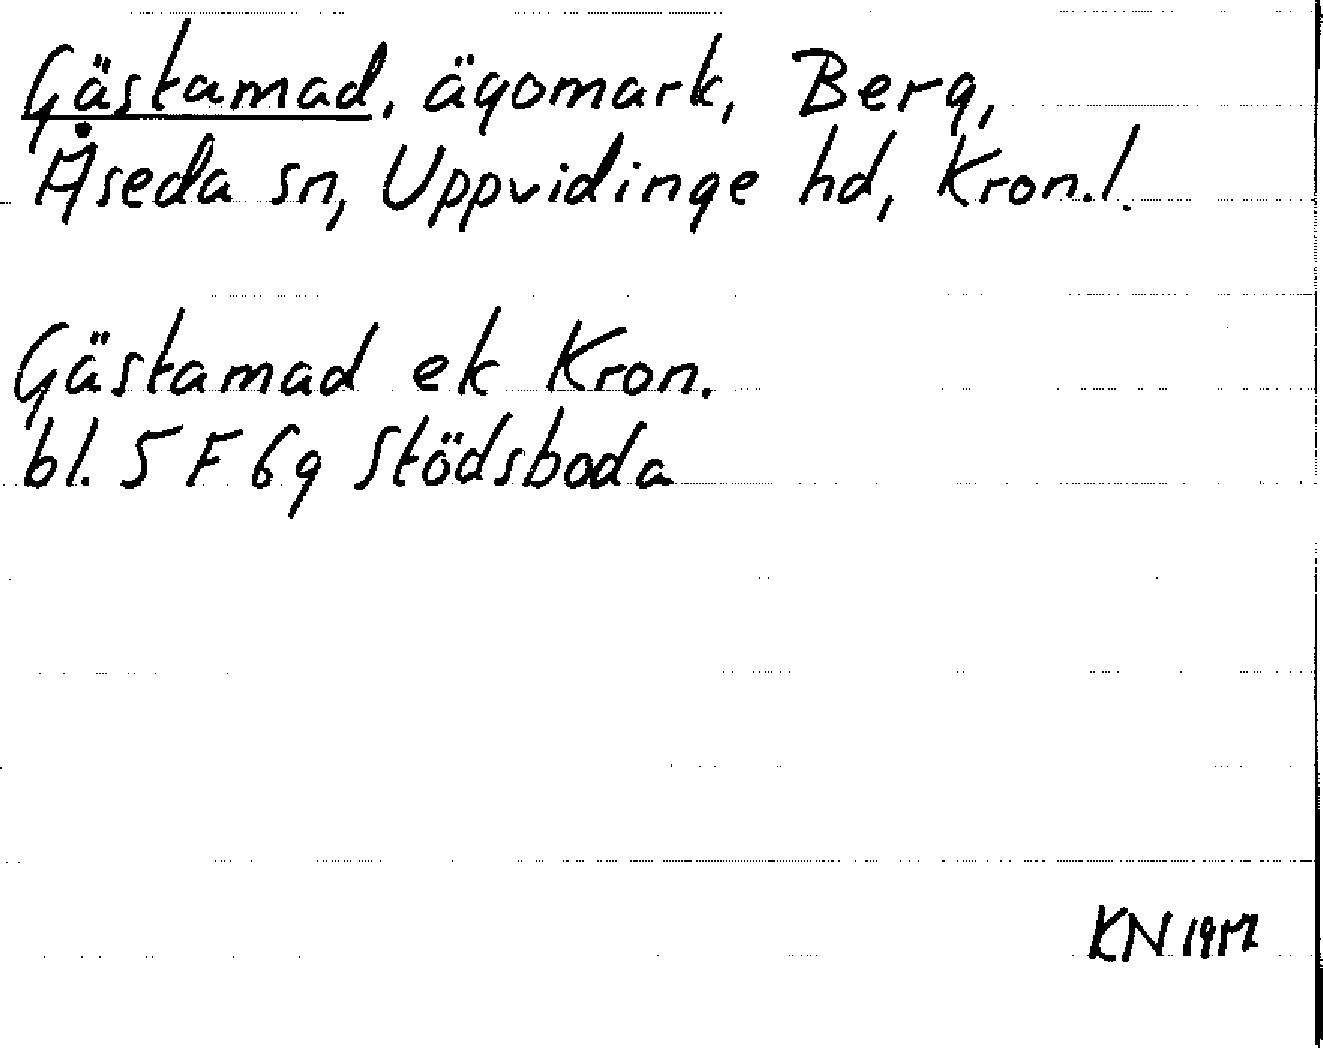 Gästamad, ägomark, Berg,
Åseda sn, Uppvidinge hd, Kron.l.
Gästamad ek Kron.
bl. 5 F 6g Stödsboda
KN